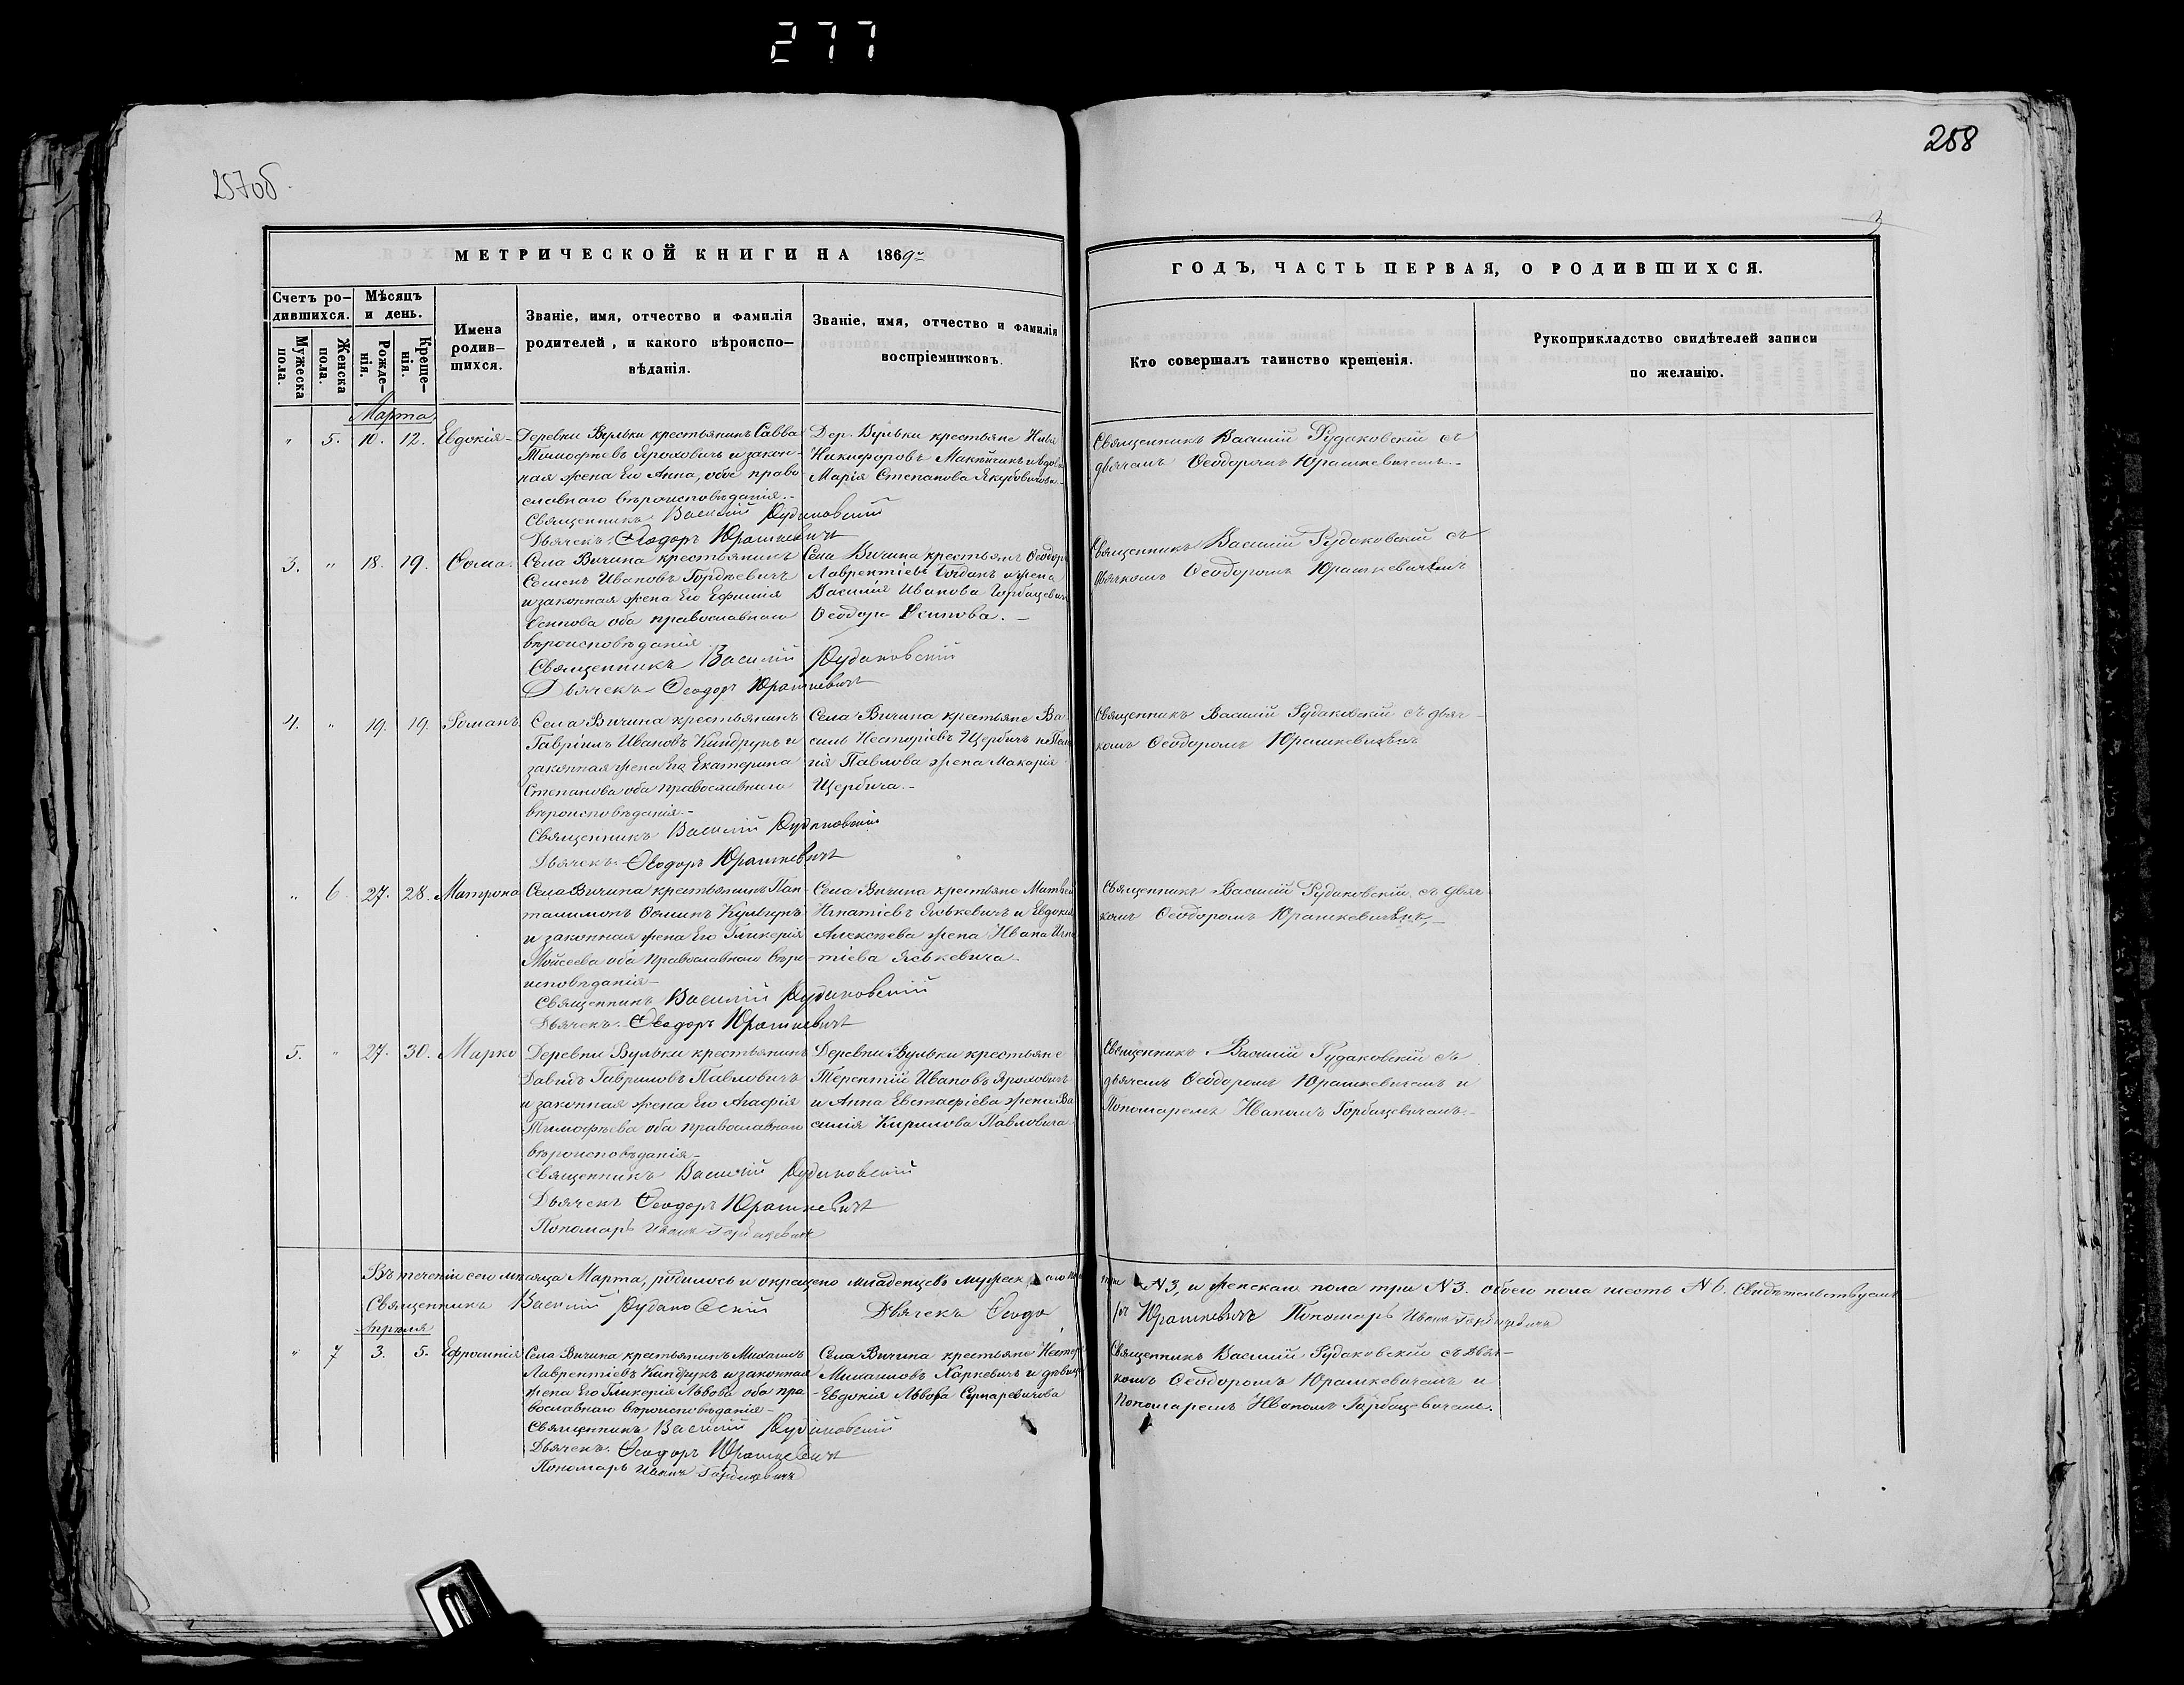 277
257об
268
3
МЕТРИЧЕСКОЙ КНИГИ НА 1869й
ГОДЪ, ЧАСТЬ ПЕРВАЯ, О РОДИВШИХСЯ.
Счетъ ро-
дившихся.
Мужеска
пола.
Женска
пола.
Мѣсяцъ
и день.
Рожде-
нія.
Креще-
нія.
Имена
родив-
шихся.
Званіе, имя, отчество и фамилія
родителей, и какого вѣроиспо-
вѣданія.
Званіе, имя, отчество и фамилія
воспріемниковъ.
Кто совершалъ таинство крещенія.
Рукоприкладство свидѣтелей записи
по желанію.
Марта
" 5. 10. 12. Евдокія
Деревни Вульки крестьянинъ Савва
Тимофѣевъ Яроховичъ и закон-
ная жена Его Анна, обое право
славнаго вѣроисповѣданія.
Священникъ Василій Рудаковскій
Дьячекъ Ѳеодоръ Юрашкевичъ
Дер. Вульки крестьяне Илья
Никифоровъ и вдова
Марія Степанова Якубовичова
Священникъ Василій Рудаковскій съ
дьячемъ Ѳеодоромъ Юрашкевичемъ.
3. " 18. 19. Ѳома.
Села Вичина крестьянинъ
Семенъ Ивановъ Гордѣевичъ
и законная жена Его Ефимія
Осипова оба православнаго
вѣроисповѣданія
Священникъ Василій Рудаковскій
Дьячекъ Ѳеодоръ Юрашкевичъ
Села Вичина крестьянъ Ѳеодоръ
Лаврентіевъ Богданъ и жена
Василія Иванова Горбацевича
Ѳеодора Осипова.
Священникъ Василій Рудаковскій съ
дьячкомъ Ѳеодоромъ Юрашкевичемъ
4. " 19. 19. Романъ
Села Вичина крестьянинъ
Гавріилъ Ивановъ Киндрукъ и
законная жена Его Екатерина
Степанова оба православнаго
вѣроисповѣданія.
Священникъ Василій Рудаковскій
Дьячекъ Ѳеодоръ Юрашкевичъ
Села Вичина крестьяне Ва-
силь Несторіевъ Щербичъ и Пела
гія Павлова жена Макарія
Щербича.
Священникъ Василій Рудаковскій съ дьяч-
комъ Ѳеодоромъ Юрашкевичемъ
" 6 27. 28. Матрона
Села Вичина крестьянинъ Пан-
талимонъ Ѳоминъ
и законная жена Его Гликерія
Мойсеева оба православнаго вѣро-
исповѣданія
Священникъ Василій Рудаковскій
Дьячекъ Ѳеодоръ Юрашкевичъ
Села Вичина крестьяне Матвѣй
Игнатіевъ Яськевичъ и Евдокія
Алексѣева жена Ивана Игна
тіева Яськевича
Священникъ Василій Рудаковскій съ дьяч-
комъ Ѳеодоромъ Юрашкевичемъ,
5. " 27. 30. Марко
Деревни Вульки крестьянинъ
Давидъ Гавриловъ Павловичъ
и законная жена Его Агафія
Тимофѣева оба православнаго
вѣроисповѣданія
Священникъ Василій Рудаковскій
Дьячекъ Ѳеодоръ Юрашкевичъ
Пономаръ Иванъ Горбацевичъ
Деревни Вульки крестьяне
Терентій Ивановъ Яроховичъ
и Анна Евстафіева жена Ва
силія Кирилова Павловича
Священникъ Василій Рудаковскій съ
дьячемъ Ѳеодоромъ Юрашкевичемъ и
Пономаремъ Иваномъ Горбацевичемъ.
Въ теченіи сего мѣсяца Марта, родилось и окрещено младенцевъ мужескаго пола три N 3, и женскаго пола три N 3. обоего пола шесть N 6. Свидѣтельствуемъ
Священникъ Василій Рудаковскій Дьячекъ Ѳеодоръ Юрашкевичъ Пономаръ Иванъ Горбацевичъ
Апрѣля
" 7 3. 5. Ефросинія
Села Вичина крестьянинъ Михаилъ
Лаврентіевъ Киндрукъ и законная
жена Его Гликерія Львова оба пра-
вославнаго вѣроисповѣданія
Священникъ Василій Рудаковскій
Дьячекъ Ѳеодоръ Юрашкевичъ
Пономаръ Иванъ Горбацевичъ
Села Вичина крестьяне Несторъ
Михаиловъ Харкевичъ и дѣвица
Евдокія Львова
Священникъ Василій Рудаковскій съ дьяч-
комъ Ѳеодоромъ Юрашкевичемъ и
Пономаремъ Иваномъ Горбацевичемъ.